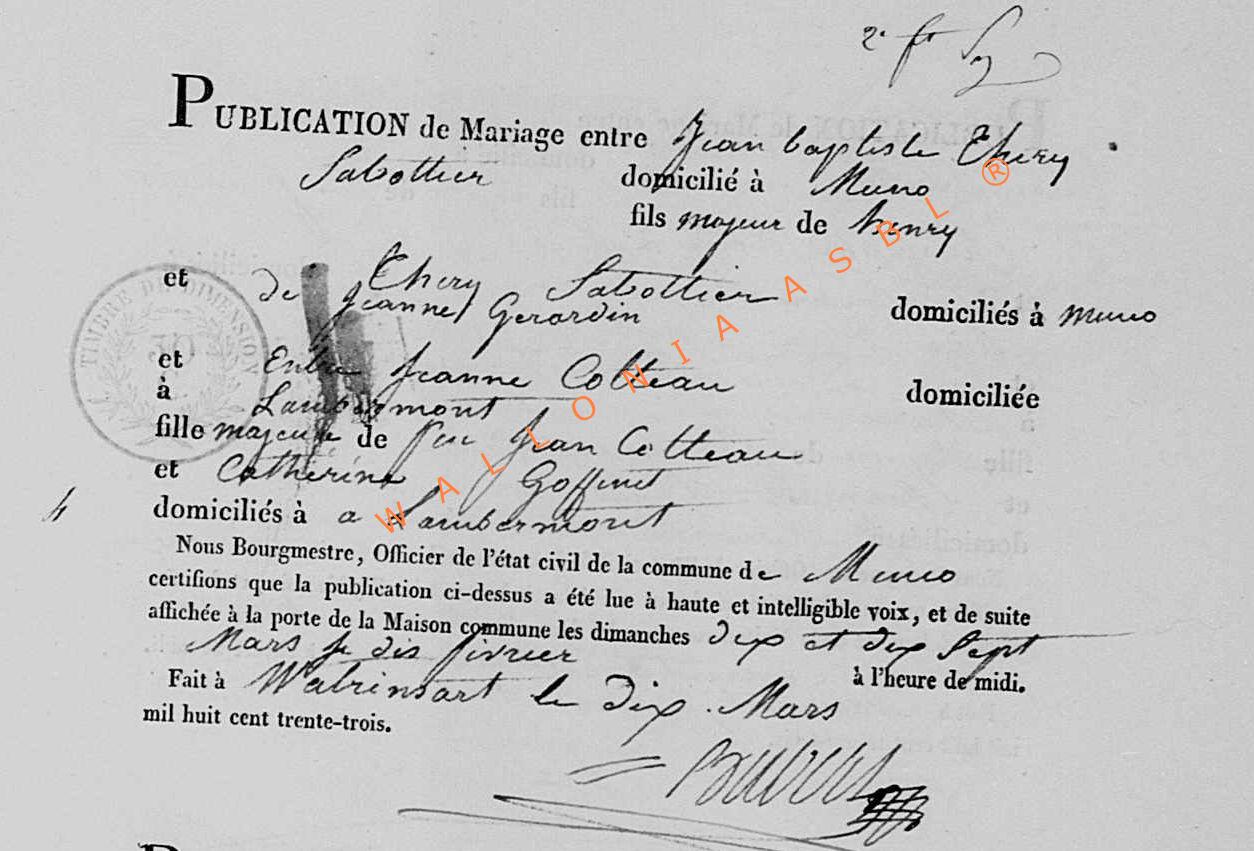 PUBLICATION de Mariage entre Jean baptiste Thiry
Sabottier domicilié à Muno
fils majeur de henry
et de Thiry Sabottier
jeanne Gerardin domiciliés à muno
et Entre Jeanne Cotteau domiciliée
à Lambermont
fille majeure de feu Jean Cotteau
et Catherine Goffinet
domiciliés à a Lambermont
Nous Bourgmestre, Officier de l'état civil de la commune de Muno
certifions que la publication ci-dessus a été lue à haute et intelligible voix, et de suite
affichée à la porte de la Maison commune les dimanches dix et dix Sept
Mars je dis fivrier à l'heure de midi.
Fait à Watrinsart le dix Mars
mil huit cent trente-trois.
TIMBRE DE DIMENSION
WALLONIA ASBL ®